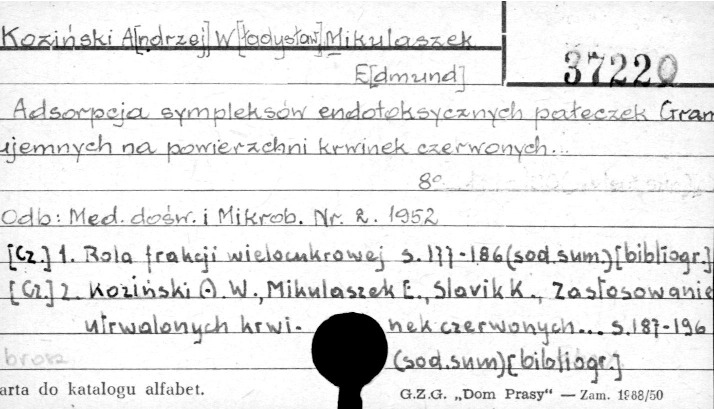 Koziński A[ndrzej] W[ładysław] Mikulaszek
E[dmund]
37220
Adsorpcja sympleksów endotoksycznych pałeczek Gram
ujemnych na powierzchni krwinek czerwonych...
8°
Odb: Med. dośw. i Mikrob. Nr. 2. 1952
[Cz.] 1. Rola frakcji wielocukrowej s. 177-186 (sod.sum.) [bibliogr.]
[Cz.] 2. Koziński A. W., Mikulaszek E., Slavik K., Zastosowanie
utrwalonych krwi- nek czerwonych... s. 187-196
brosz (sod.sum) [bibliogr.]
arta do katalogu alfabet. G.Z.G. „Dom Prasy" — Zam. 1988/50